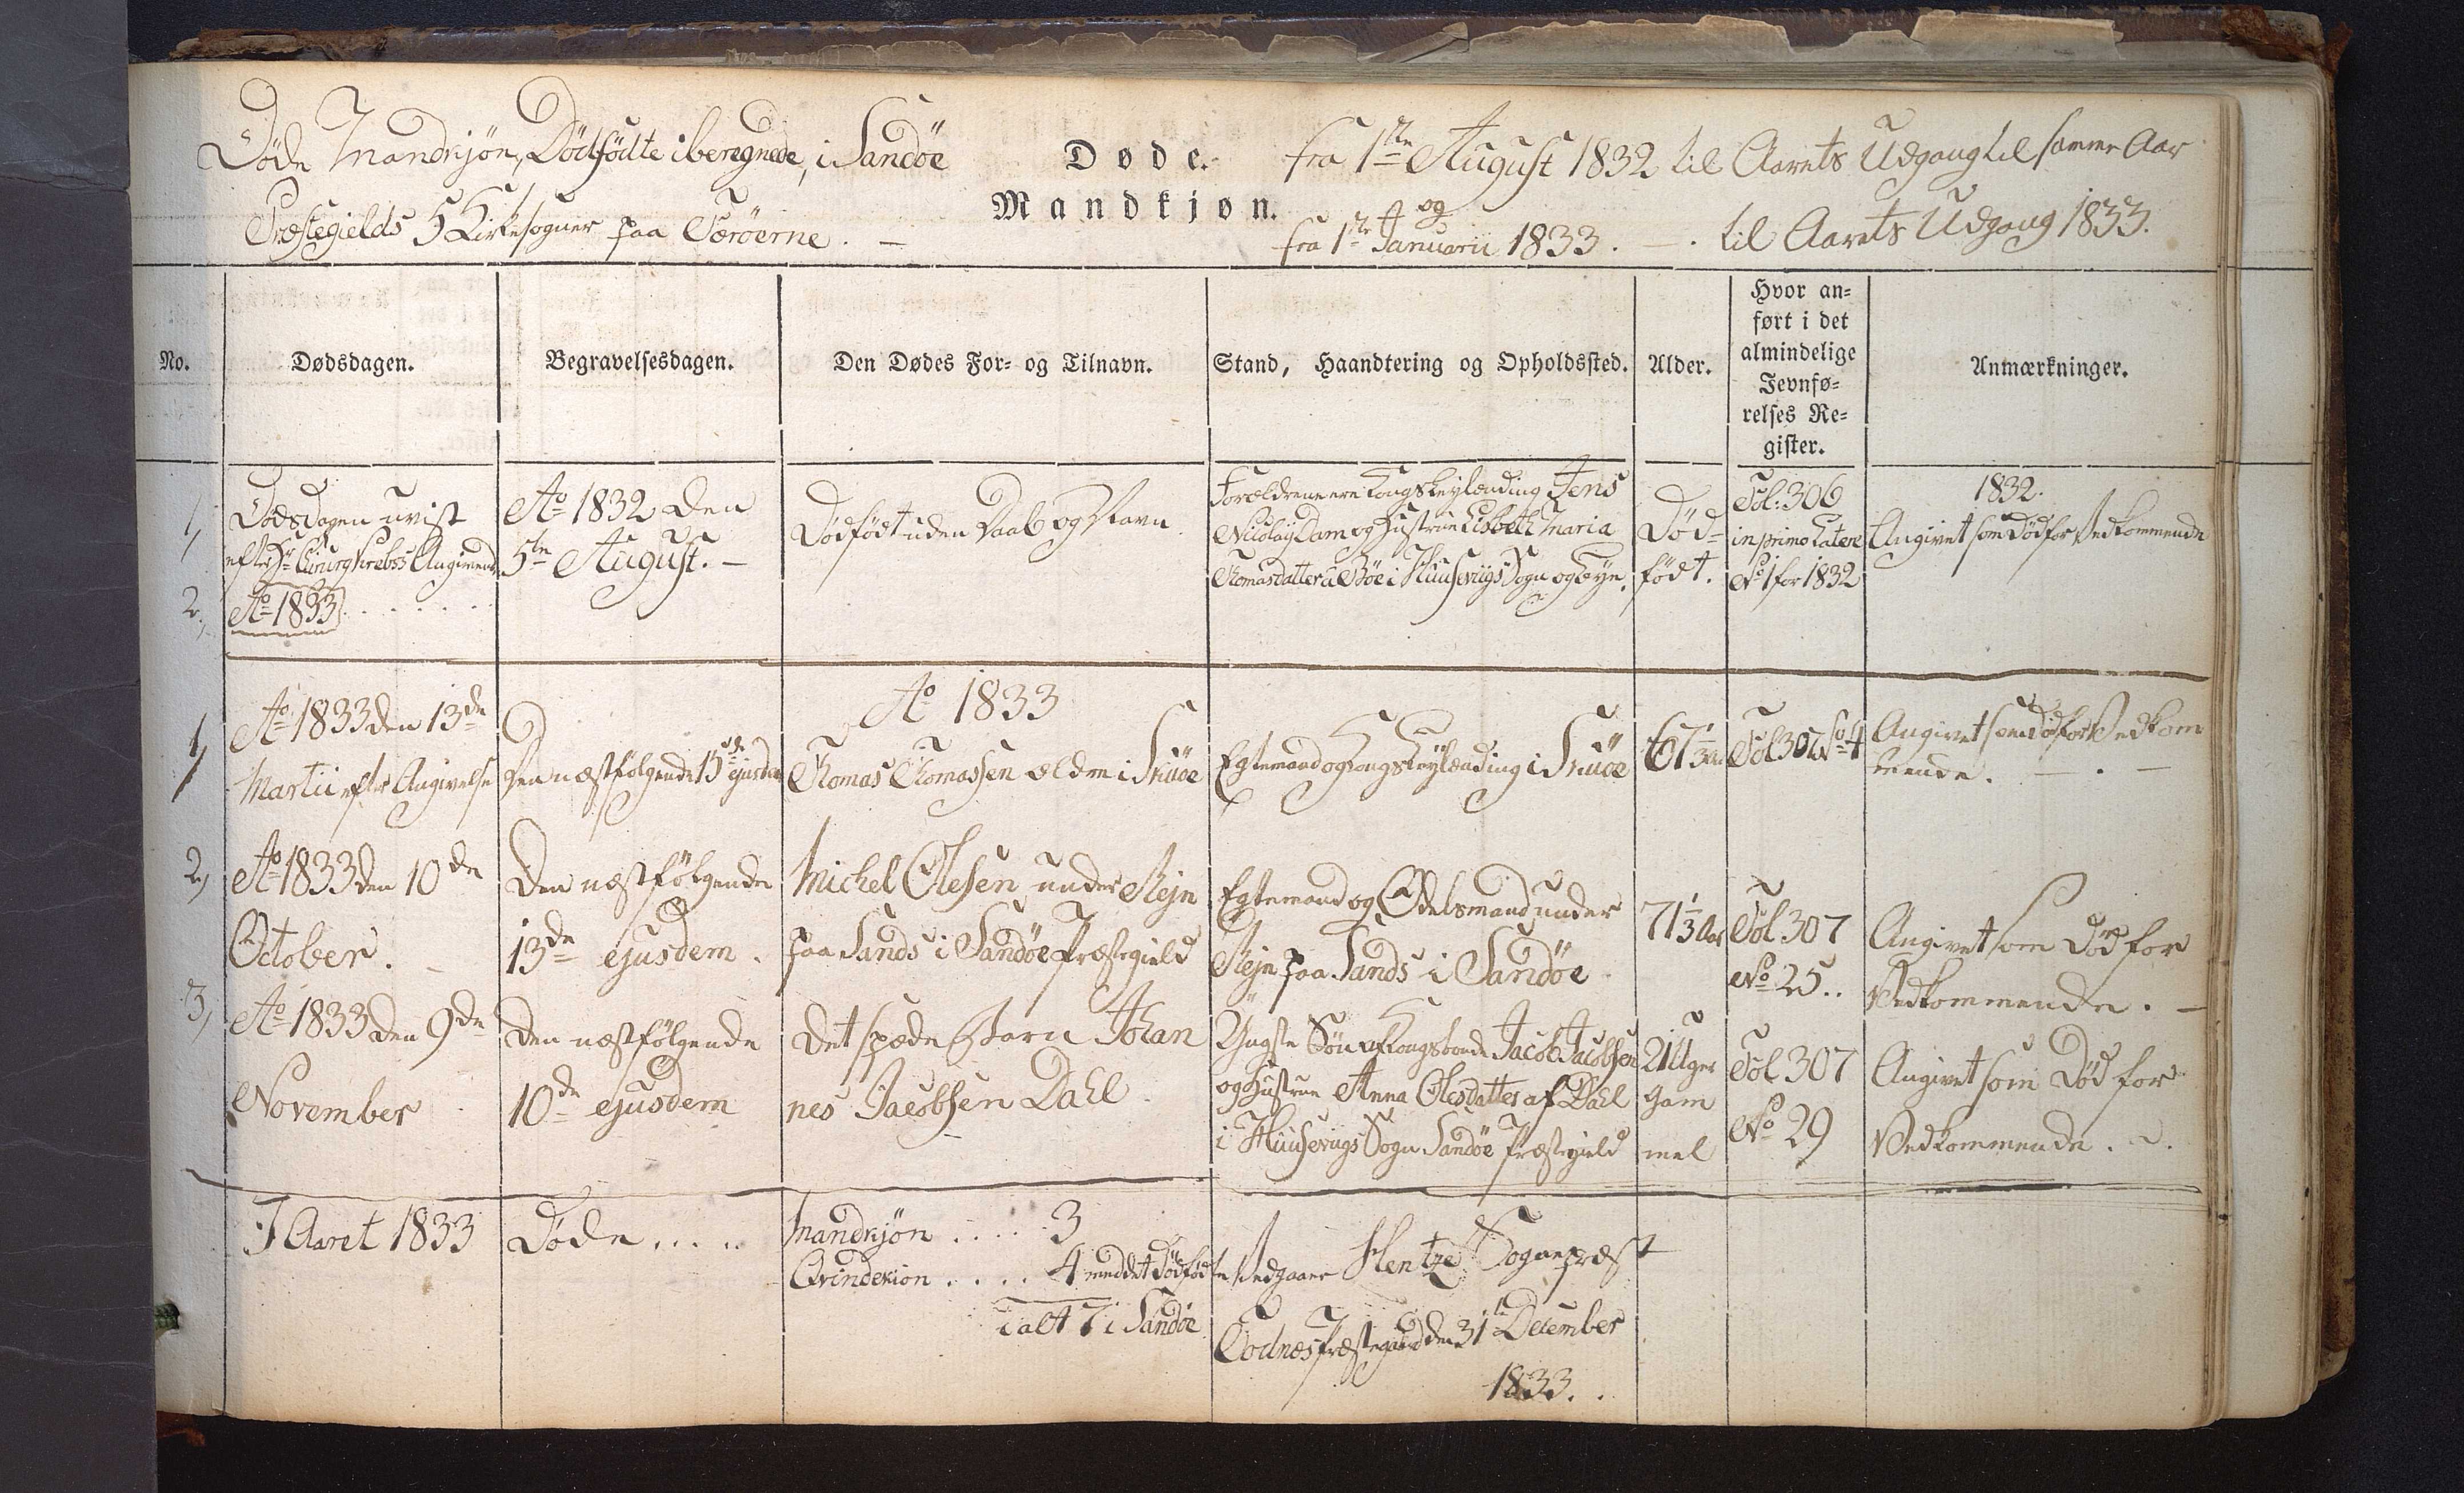 Døde Mandkjön, Dödfödte iberegnede, i Sandöe
Præstegields 5 Kirkesogner paa Færöerne. —
Døde.
Mandkjøn.
fra 1ste August 1832 til Aarets Udgang til samme Aar
og
fra 1ste Januarii 1833. — . til Aarets Udgang 1833.
No.
Dødsdagen.
Begravelsesdagen.
Den Dødes For- og Tilnavn.
Stand, Haandtering og Opholdssted.
Alder.
Hvor an-
ført i det
almindelige
Jevnfø-
relses Re-
gister.
Anmærkninger.
1,
Dödsdagen uvist
efter Hr Chirurg Angivende
Ao 1832 den
5te August. —
Dödfödt uden Daab og Navn
Forældrene ere Kongsleylending Jens
Nicolaÿ Dam og Hustrue Lisbeth Maria
Thomasdatter i Böe i Huusevigs Sogn og Bye.
Död-
födt.
Fol: 306
in primo Latere
No 1 for 1832
1832.
Angivet som Död for Vedkommende
2,
Ao 1833 . . . . . .
Ao 1833
1,
Ao 1833 den 13de
Martii efter Angivelse
Den næstfölgende 15de ejusdem
Thomas Thomassen ældre i Skuöe
Egtemand og Kongsleÿlending i Skuöe
67 1/3 Aar
Fol 307 No 4
Angivet som död for Vedkom
mende. — . —
2,
Ao 1833 den 10de
October. —
Den næstfölgende
13de ejusdem.
Michel Olesen under Rejn
paa Sands i Sandöe Præstegield
Egtemand og Odelsmand under
Rejn paa Sands i Sandöe.
71 1/3 Aar
Fol 307
No 25..
Angivet som Död for
Vedkommende. —
3,
Ao 1833 den 9de
November
Den næstfölgende
10de ejusdem
Det spæde Barn Johan
nes Jacobsen Dahl.
Yngste Sön af Kongsbonde Jacob Jacobsen
og Hustrue Anna Olesdatter af Dahl
i Huusevigs Sogn Sandöe Præstegield
21 Uger
gam
mel
Fol 307
No 29
Angivet som Död for
Vedkommende. .
I Aaret 1833
Döde . . . . .
Mandkjön . . . . . 3
Qvindekion . . . . 4 med det Dödfödte
i alt 7 i Sandöe
Vedgaaer Hentze Sognepræst
Todnes Præstegaard den 31te December
1833. .